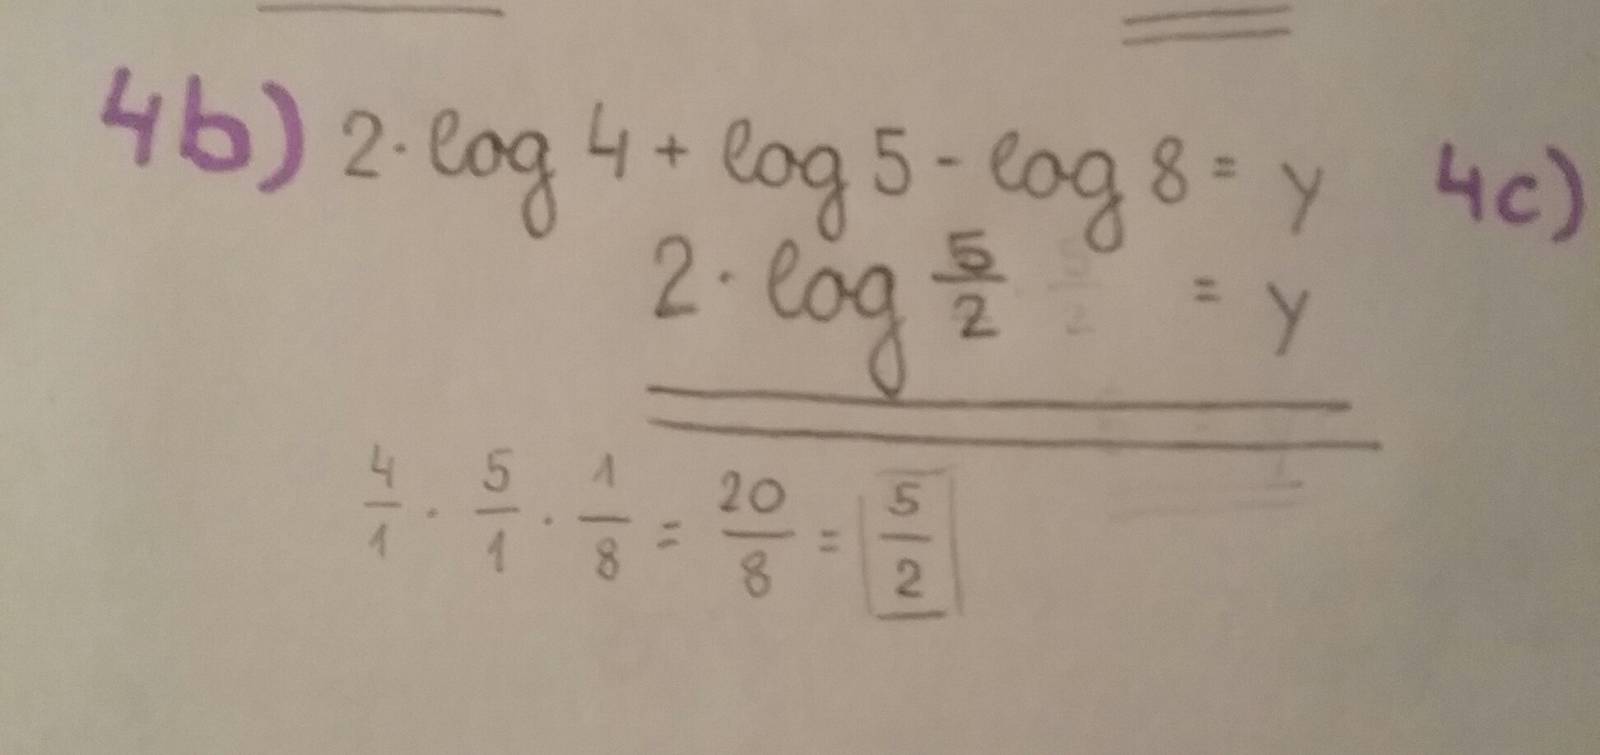 4b) 2·log 4 + log 5 - log 8 = y 4c)
2·log 5/2 = y
4/1 · 5/1 · 1/8 = 20/8 = 5/2